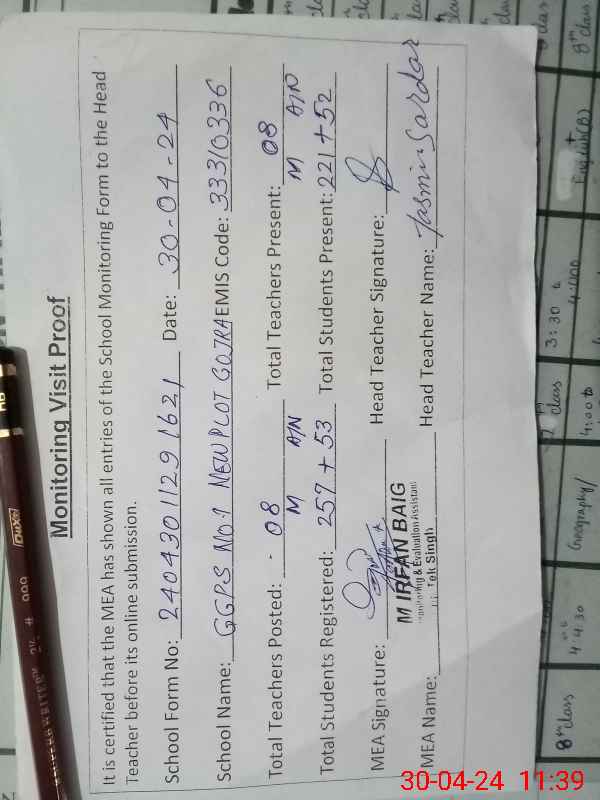 Monitoring Visit Proof
It is certified that the MEA has shown all entries of the School Monitoring Form to the Head
Teacher before its online submission.
School Form No: 2404301129 1621 Date: 30-04-24
School Name: GGPS NO.1 NEWPLOT GOJRA EMIS Code: 33310336
Total Teachers Posted: 08 Total Teachers Present: 08
M A/N M A/N
Total Students Registered: 257 + 53 Total Students Present: 221 + 52
MEA Signature: Head Teacher Signature:
M IRFAN BAIG
Monitoring & Evaluation Assistant
MEA Name: Tek Singh Head Teacher Name: Yasmin Sardar
8th class
4:4:30
Geography/
4:00 to
class
3:30 to
4:00
English(B)
8th class
class
DUX
HB
30-04-24 11:39